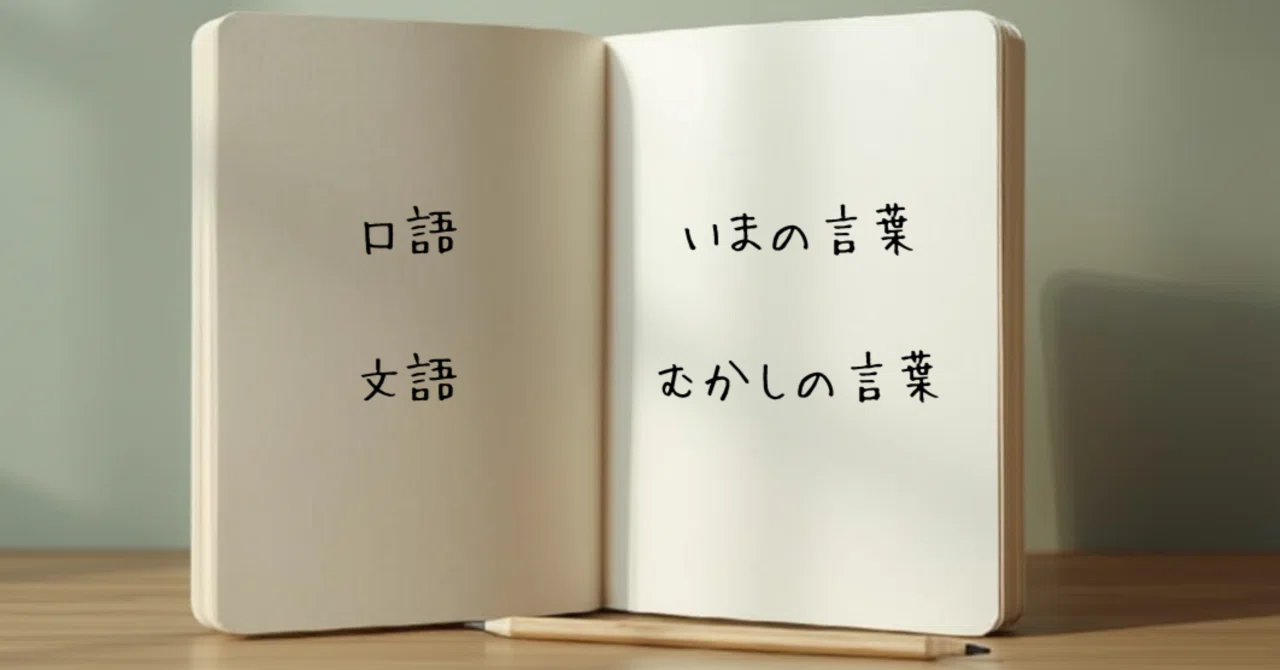 口語
文語
いまの言葉
むかしの言葉